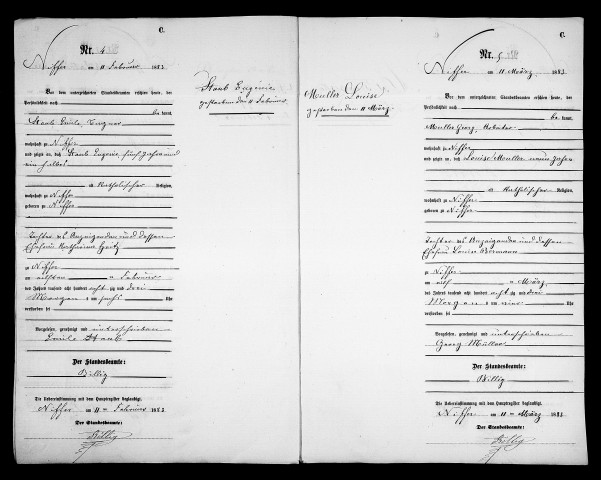 C.
Nr. 4
Niffer am 11 Februar 1883
Vor dem unterzeichneten Standesbeamten erschien heute, der
Persönlichkeit nach
be kannt,
Staub Emile,
wohnhaft zu Niffer
und zeigte an, daß Staub Eugenie, fünf Jahre und
ein halbes
Katholischer Religion,
wohnhaft zu Niffer
geboren zu Niffer
Tochter des Anzeigenden und dessen
Ehefrau Katharina
zu Niffer
am elften Februar
des Jahres tausend acht hundert acht zig und drei
Morgens um sechs Uhr
verstorben sei
Vorgelesen, genehmigt und unterschrieben
Emile Staub
Der Standesbeamte:
Billig
Die Uebereinstimmung mit dem Hauptregister beglaubigt.
Niffer am 11 Februar 1883
Der Standesbeamte:
Billig
Staub Eugénie
gestorben den 11 Februar
Muller Louise
gestorben den 11 März.
C.
Nr. 5
Niffer am 11 März 1883.
Vor dem unterzeichneten Standesbeamten erschien heute, der
Persönlichkeit nach
be kannt,
Muller Georg,
wohnhaft zu Niffer
und zeigte an, daß Louise Muller neun Jahre
Katholischer Religion,
wohnhaft zu Niffer
geboren zu Niffer
Tochter des Anzeigenden und dessen
Ehefrau Louise
zu Niffer
am elf März,
des Jahres tausend acht hundert acht zig und drei
Morgens um vier Uhr
verstorben sei
Vorgelesen, genehmigt und unterschrieben
Georg Müller
Der Standesbeamte:
Billig
Die Uebereinstimmung mit dem Hauptregister beglaubigt.
Niffer am 11 März 1883
Der Standesbeamte:
Billig